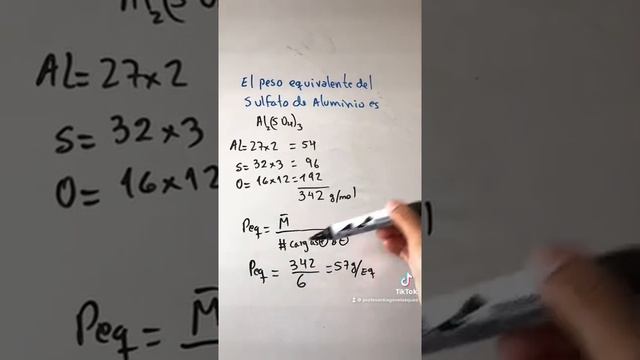 El peso equivalente del
Sulfato de Aluminio es
Al₂(SO₄)₃
AL=27x2 = 54
S=32x3 = 96
O=16x12=192
342 g/mol
Peq = M̄
#cargas⊕ o ⊖
Peq = 342
6
=57g/Eq
TikTok
AL=27x2
S=32x3
O=16x12
Peq=M̄